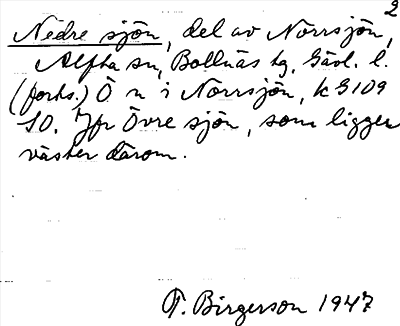 2
Nedre sjön, del av Norrsjön,
Alfta sn, Bollnäs tg, Gävl. l.
(forts.) Ö n i Norrsjön, k G109
SO. Jfr Övre sjön, som ligger
väster därom.
T. Birgerson 1947